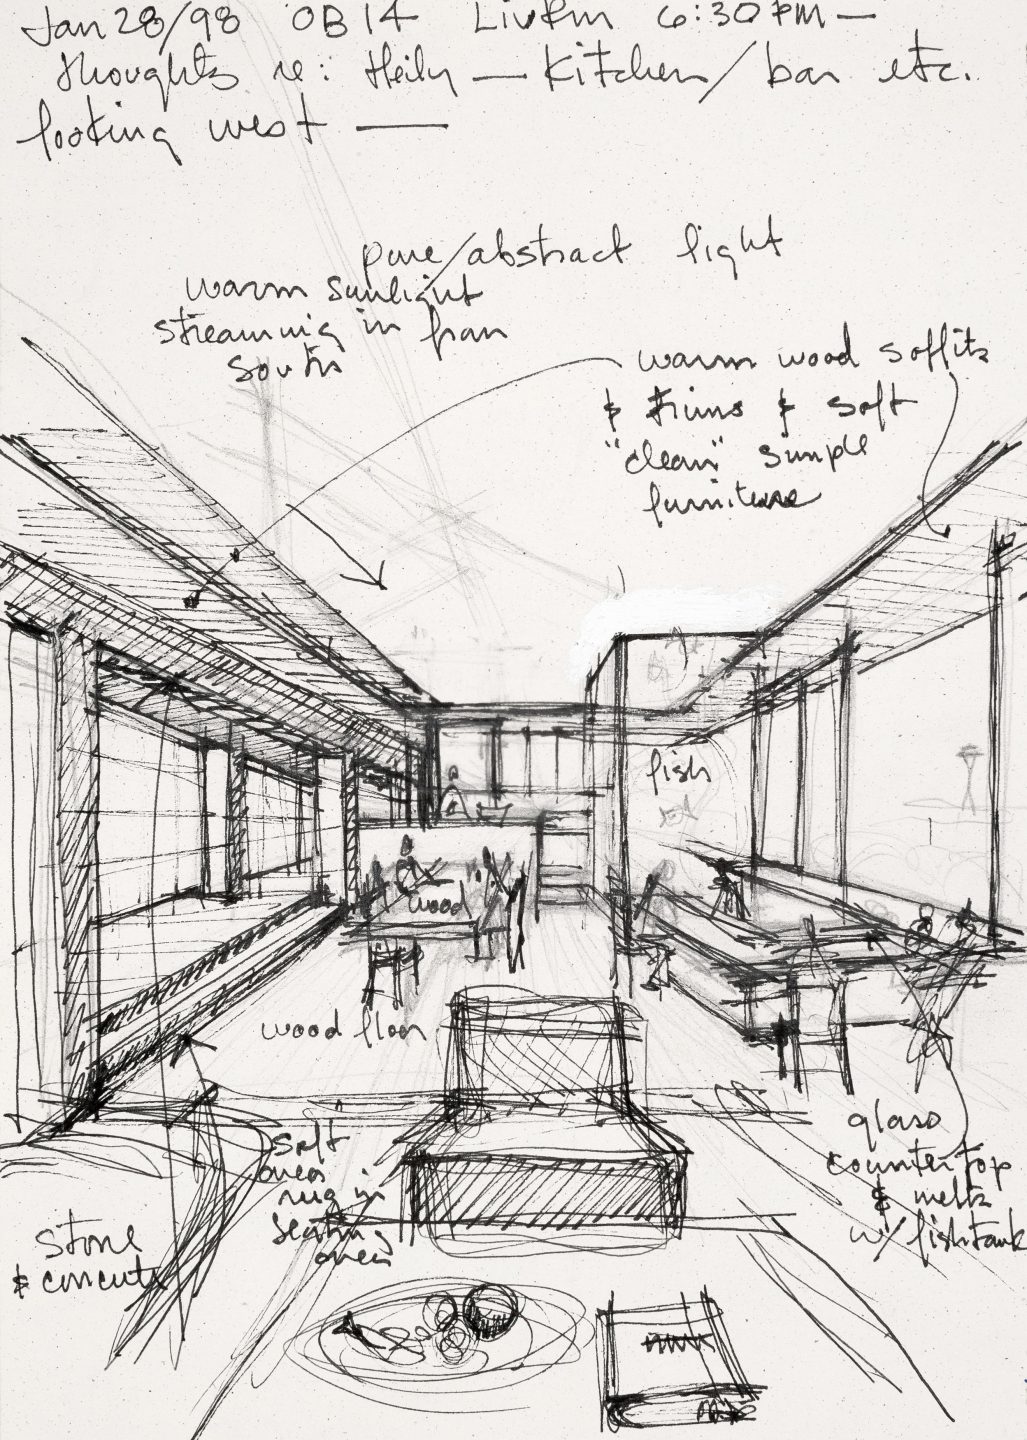 Jan 28/98 OB14 LivRm 6:30PM —
thoughts re: Heily — Kitchen/bar etc.
looking west —
pure/abstract light
warm sunlight
streaming in from
south
warm wood soffits
& trims & soft
"clean" simple
furniture
fish
wood
wood floor
soft
area
rug in
seating
area
stone
& concrete
glass
countertop
& melts
w/ fishtank